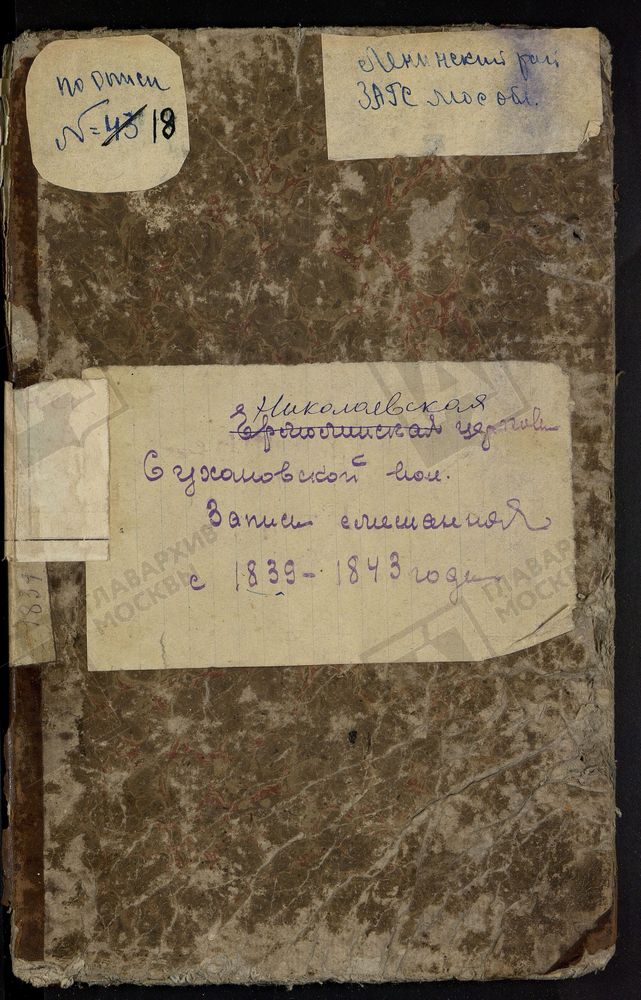 по описи
№=43 18
Ленинский рай
ЗАГС Мособл.
Николаевская
Ермолинская церкови
Сухановской вол.
Записи смешанная
с 1839-1843 годы
1839
ГЛАВАРХИВ
МОСКВЫ
ГЛАВАРХИВ
МОСКВЫ